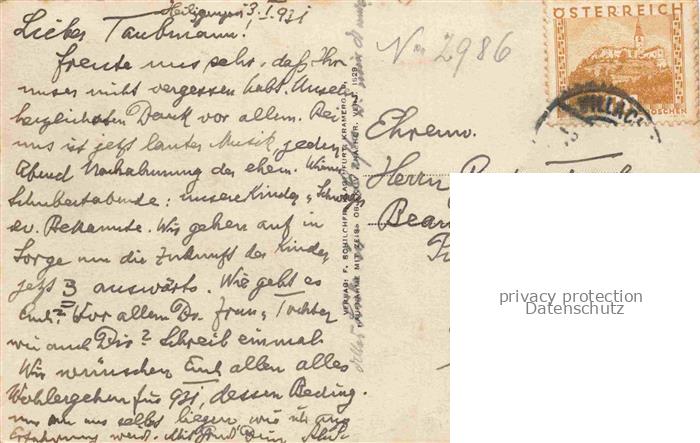 Heiligengeist 3. I. 931
Lieber Taubmann!
Freute uns sehr, daß Ihr
unser nicht vergessen habt. Unsern
herzlichsten Dank vor allem. Bei
uns ist jetzt lauter Musik, jeden
Abend Nachahmung der ehem. Wiener
Schubertabende: unsere Kinder, Schwager
ev. Bekannte. Wir gehen auf in
Sorge um die Zukunft der Kinder
jetzt 3 auswärts. Wie geht es
Euch? Vor allem Dr. Frau, Tochter
wie auch Dir? Schreib einmal
Wir wünschen Euch allen alles
Wohlergehen für 931, dessen Beding.
nur in uns selbst liegen, wie
Erfahrung
VERLAG: F. SCHILCHER, KLAGENFURT,
AUFNAHME MIT ZEISS
VERV. 1529
No 2986
ÖSTERREICH
GROSCHEN
VILLACH
Ehrenw.
Herrn
privacy protection
Datenschutz